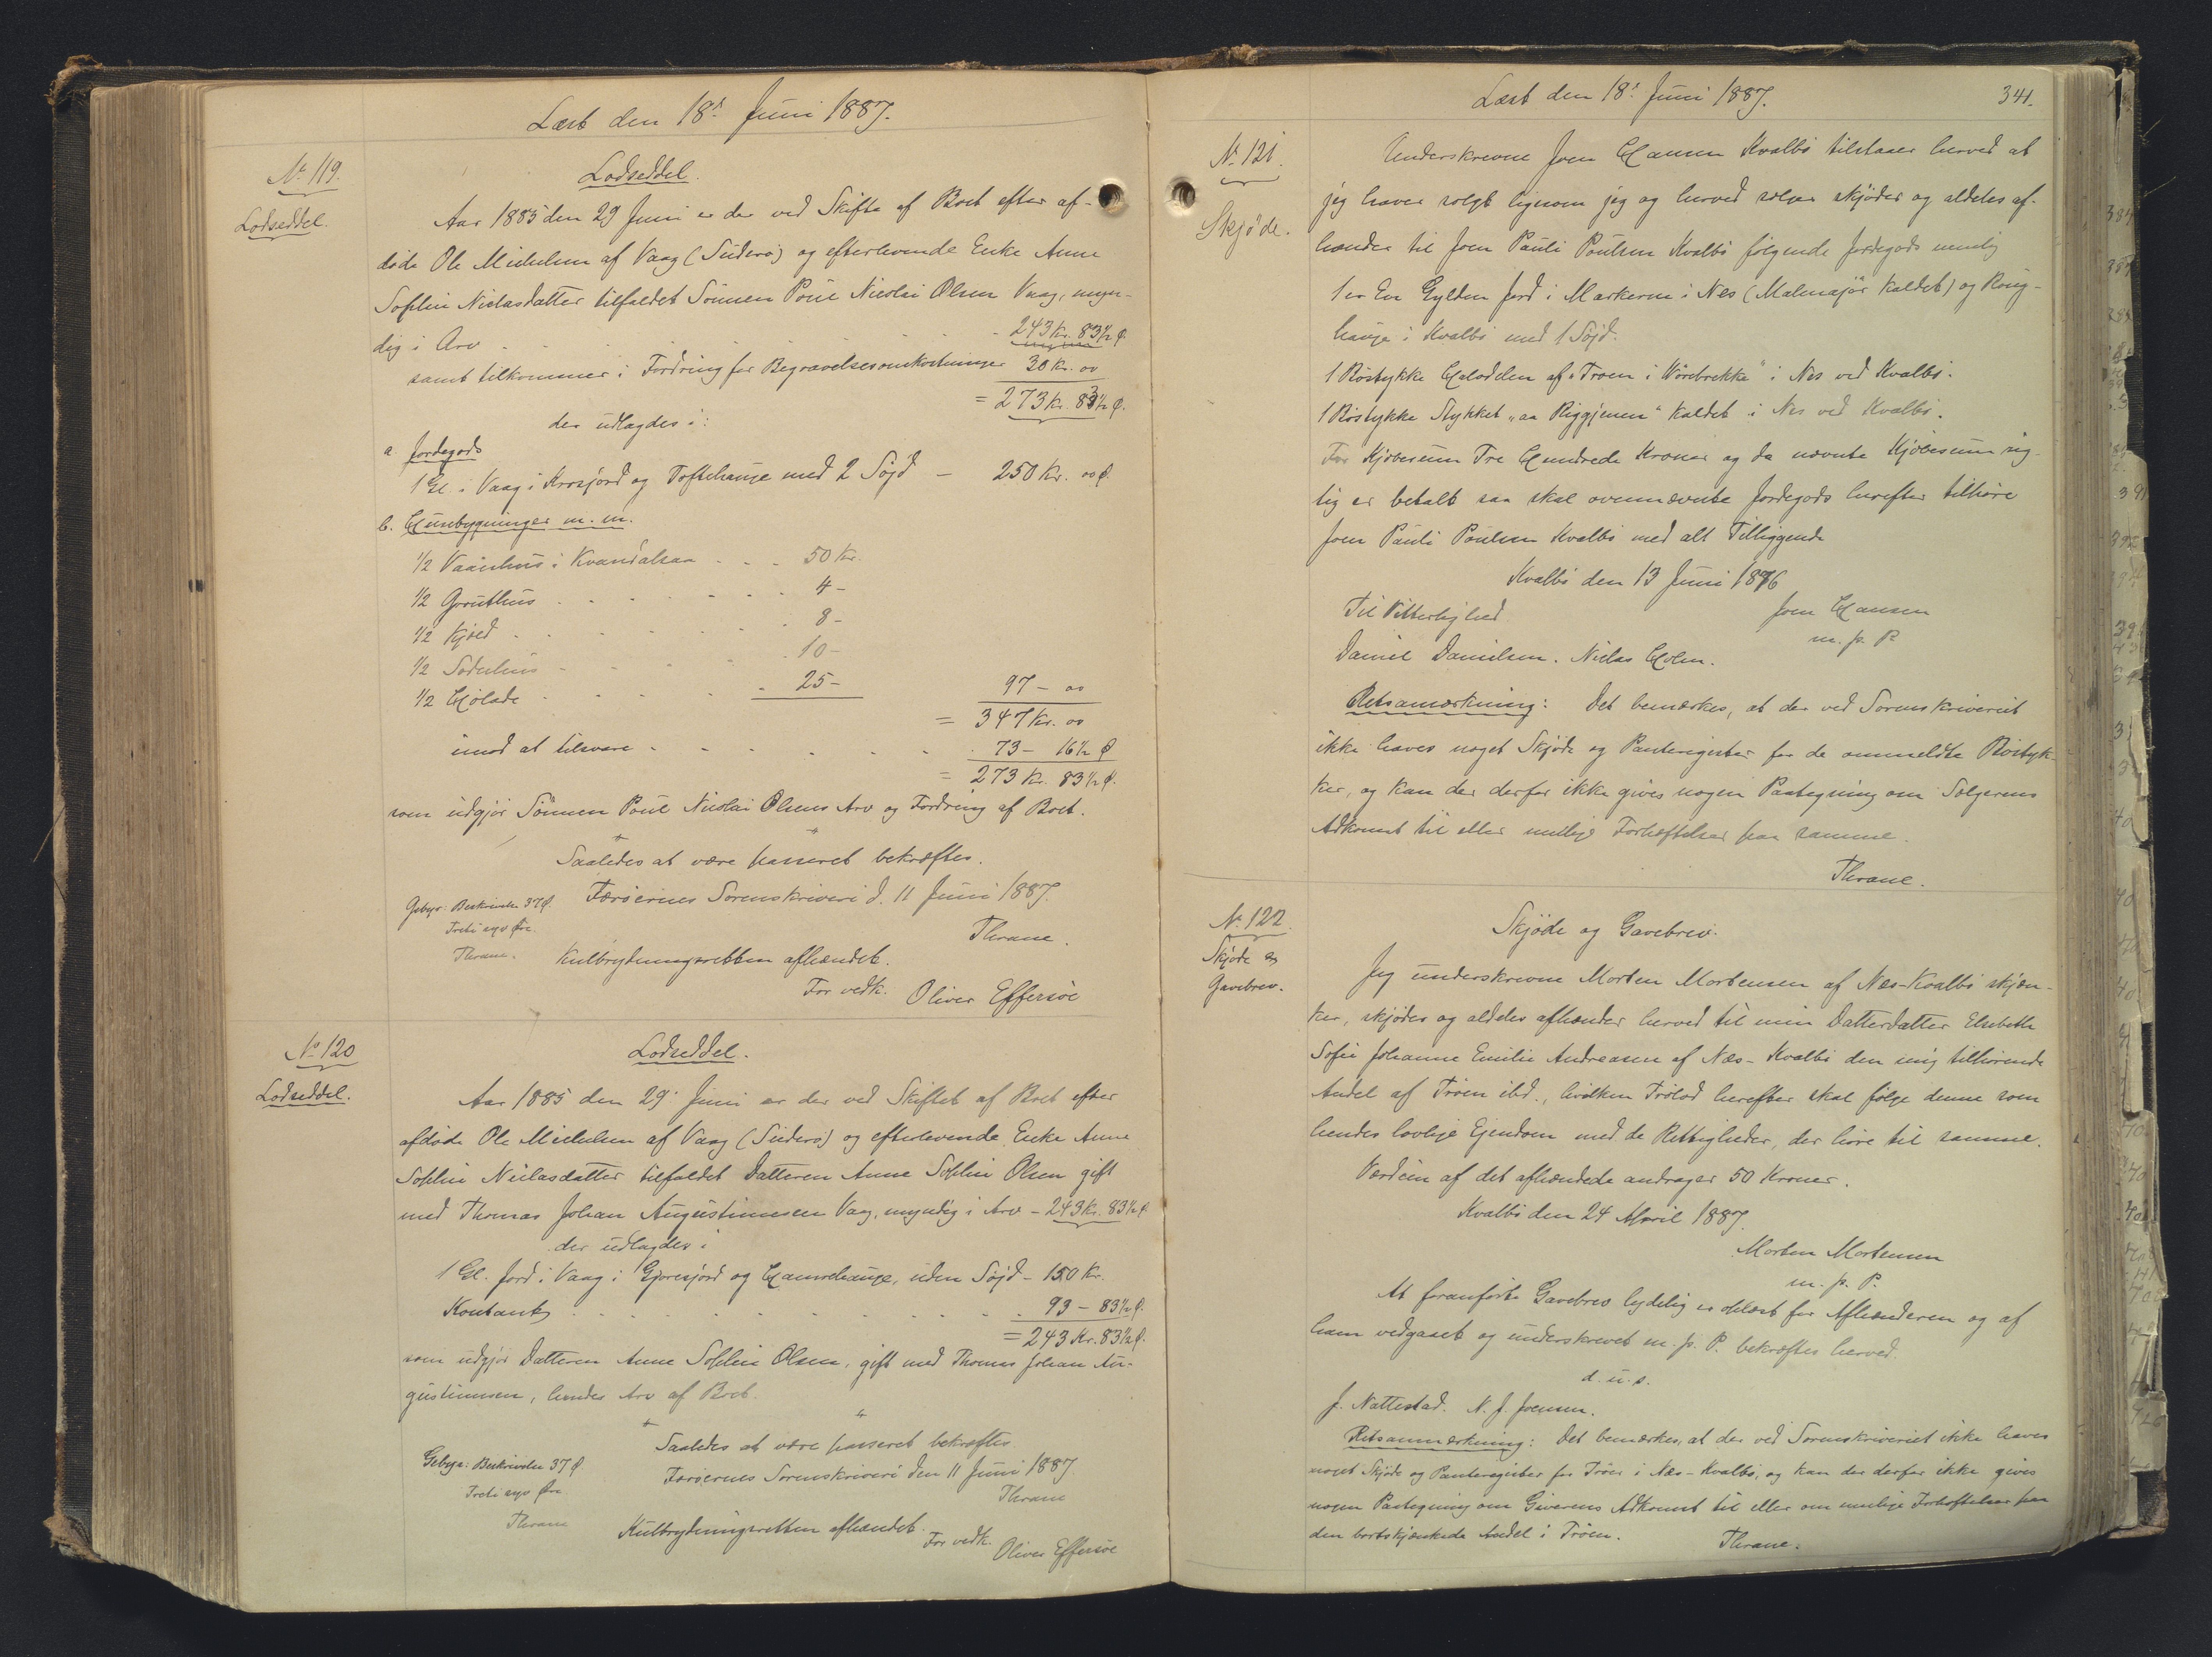 Læst den 18d Juni 1887.
No 119.
Lodseddel.
Lodseddel.
Aar 1885 den 29 Juni er der ved Skifte af Boet efter af-
døde Ole Michelsen af Vaag (Suderø) og efterlevende Enke Anne
Sophie Niclasdatter tilfaldet Sønnen Poul Nicolai Olsen Vaag, myn-
dig i Arv - - - - - 243 Kr. 83½ Ø
samt tilkommer i Fordring for Begravelsesomkostninger 30 Kr. 00
= 273 Kr. 83½ Ø.
der udlagdes i:
a. Jordegods
1 Gl. i Vaag i og Toftehauge med 2 Søjd — 250 Kr. 00 Ø.
b. Husbygninger m. m.
1/2 Vaanhus i Kvandalsaa - - - 50 Kr.
1/2 Grouthus - - - - - 4 -
1/2 Kjæld - - - - - 8 -
1/2 Sodnhus - - - - - 10 -
1/2 Hjølade - - - - - 25 - 97 - 00
= 347 Kr. 00
imod at tilsvare - - - - - 73 - 16½ Ø
= 273 Kr. 83½ Ø.
som udgjør Sønnen Poul Nicolai Olsens Arv og Fordring af Boet.
Saaledes at være passeret bekræftes.
Færøernes Sorenskriveri d. 11 Juni 1887.
Thrane.
Gebyr: Beskrivelse 37 Ø.
Treti syv Øre.
Thrane.
Kulbrydningsretten afhændet.
For vedk. Oliver Effersøe
No 120
Lodseddel.
Lodseddel.
Aar 1885 den 29. Juni er der ved Skiftet af Boet efter
afdøde Ole Michelsen af Vaag (Suderø) og efterlevende Enke Anne
Sophie Niclasdatter tilfaldet Datteren Anne Sophie Olsen gift
med Thomas Johan Augustinussen Vaag, myndig i Arv - 243 Kr. 83½ Ø
der udlagdes i
1 Gl. Jord i Vaag i Gjøresjord og Hamrehauge, uden Søjd - 150 Kr.
Kontant - - - - - 93 - 83½ Ø.
= 243 Kr. 83½ Ø.
som udgjør Datteren Anne Sophie Olsen, gift med Thomas Johan Au-
gustinussen, hendes Arv af Boet.
Saaledes at være passeret bekræftes
Færøernes Sorenskriveri den 11 Juni 1887.
Thrane
Gebyr: Beskrivelse 37 Ø.
Treti syv Øre
Thrane
Kulbrydningsretten afhændet.
For vedk. Oliver Effersøe
Læst den 18d Juni 1887.
341.
No 121.
Skjøde.
Underskrevne Joen Hansen Kvalbø tilstaaer herved at
jeg haver solgt ligesom jeg og herved sælger skjøder og aldeles af-
hænder til Joen Pauli Poulsen Kvalbø følgende Jordegods nemlig
1 er En Gylden Jord i Markerne i Nes (Malmajør kaldet) og Kong-
hauge i Kvalbø med 1 Søjd.
1 Bøstykke Helvdelen af "Troen i Wørebrekke" i Nes ved Kvalbø.
1 Bøstykke Stykket "aa Riggjenen" kaldet i Nes ved Kvalbø.
For Kjøbesum Tre Hundrede Kroner og da nævnte Kjøbesum rig-
tig er betalt saa skal ovennævnte Jordegods herefter tilhøre
Joen Pauli Poulsen Kvalbø med alt Tilliggende
Kvalbø den 13 Juni 1876
Til Vitterlighed Joen Hansen
m. p. P.
Daniel Danielsen. Niclas Holm.
Retsanmærkning: Det bemærkes, at der ved Sorenskriveriet
ikke haves noget Skjøde og Panteregister for de ommeldte Bøstyk-
ker, og kan der derfor ikke gives nogen Paategning om Sælgerens
Adkomst til eller mulige Forhæftelser paa samme.
Thrane.
No 122.
Skjøde og
Gavebrev.
Skjøde og Gavebrev.
Jeg underskrevne Morten Mortensen af Næs-Kvalbø skjæn-
ker, skjøder og aldeles afhænder herved til min Datterdatter Elsebeth
Sofie Johanne Emilie Andreasen af Næs-Kvalbø den mig tilhørende
Andel af Trøen ibd., hvilken Trølod herefter skal følge denne som
hendes lovlige Ejendom med de Rettigheder, der høre til samme.
Værdien af det afhændede andrager 50 Kroner.
Kvalbø den 24 April 1887.
Morten Mortensen
m. p. P.
At foranførte Gavebrev lydelig er oplæst for Afhænderen og af
ham vedgaaet og underskrevet m. p. P. bekræftes herved.
d. u. s.
J. Nattestad. N. J. Joensen.
Retsanmærkning: Det bemærkes, at der ved Sorenskriveriet ikke haves
noget Skjøde og Panteregister for Trøen i Næs-Kvalbø, og kan der derfor ikke gives
nogen Paategning om Giverens Adkomst til eller om mulige Forhæftelser paa
den bortskjænkede Andel i Trøen.
Thrane.